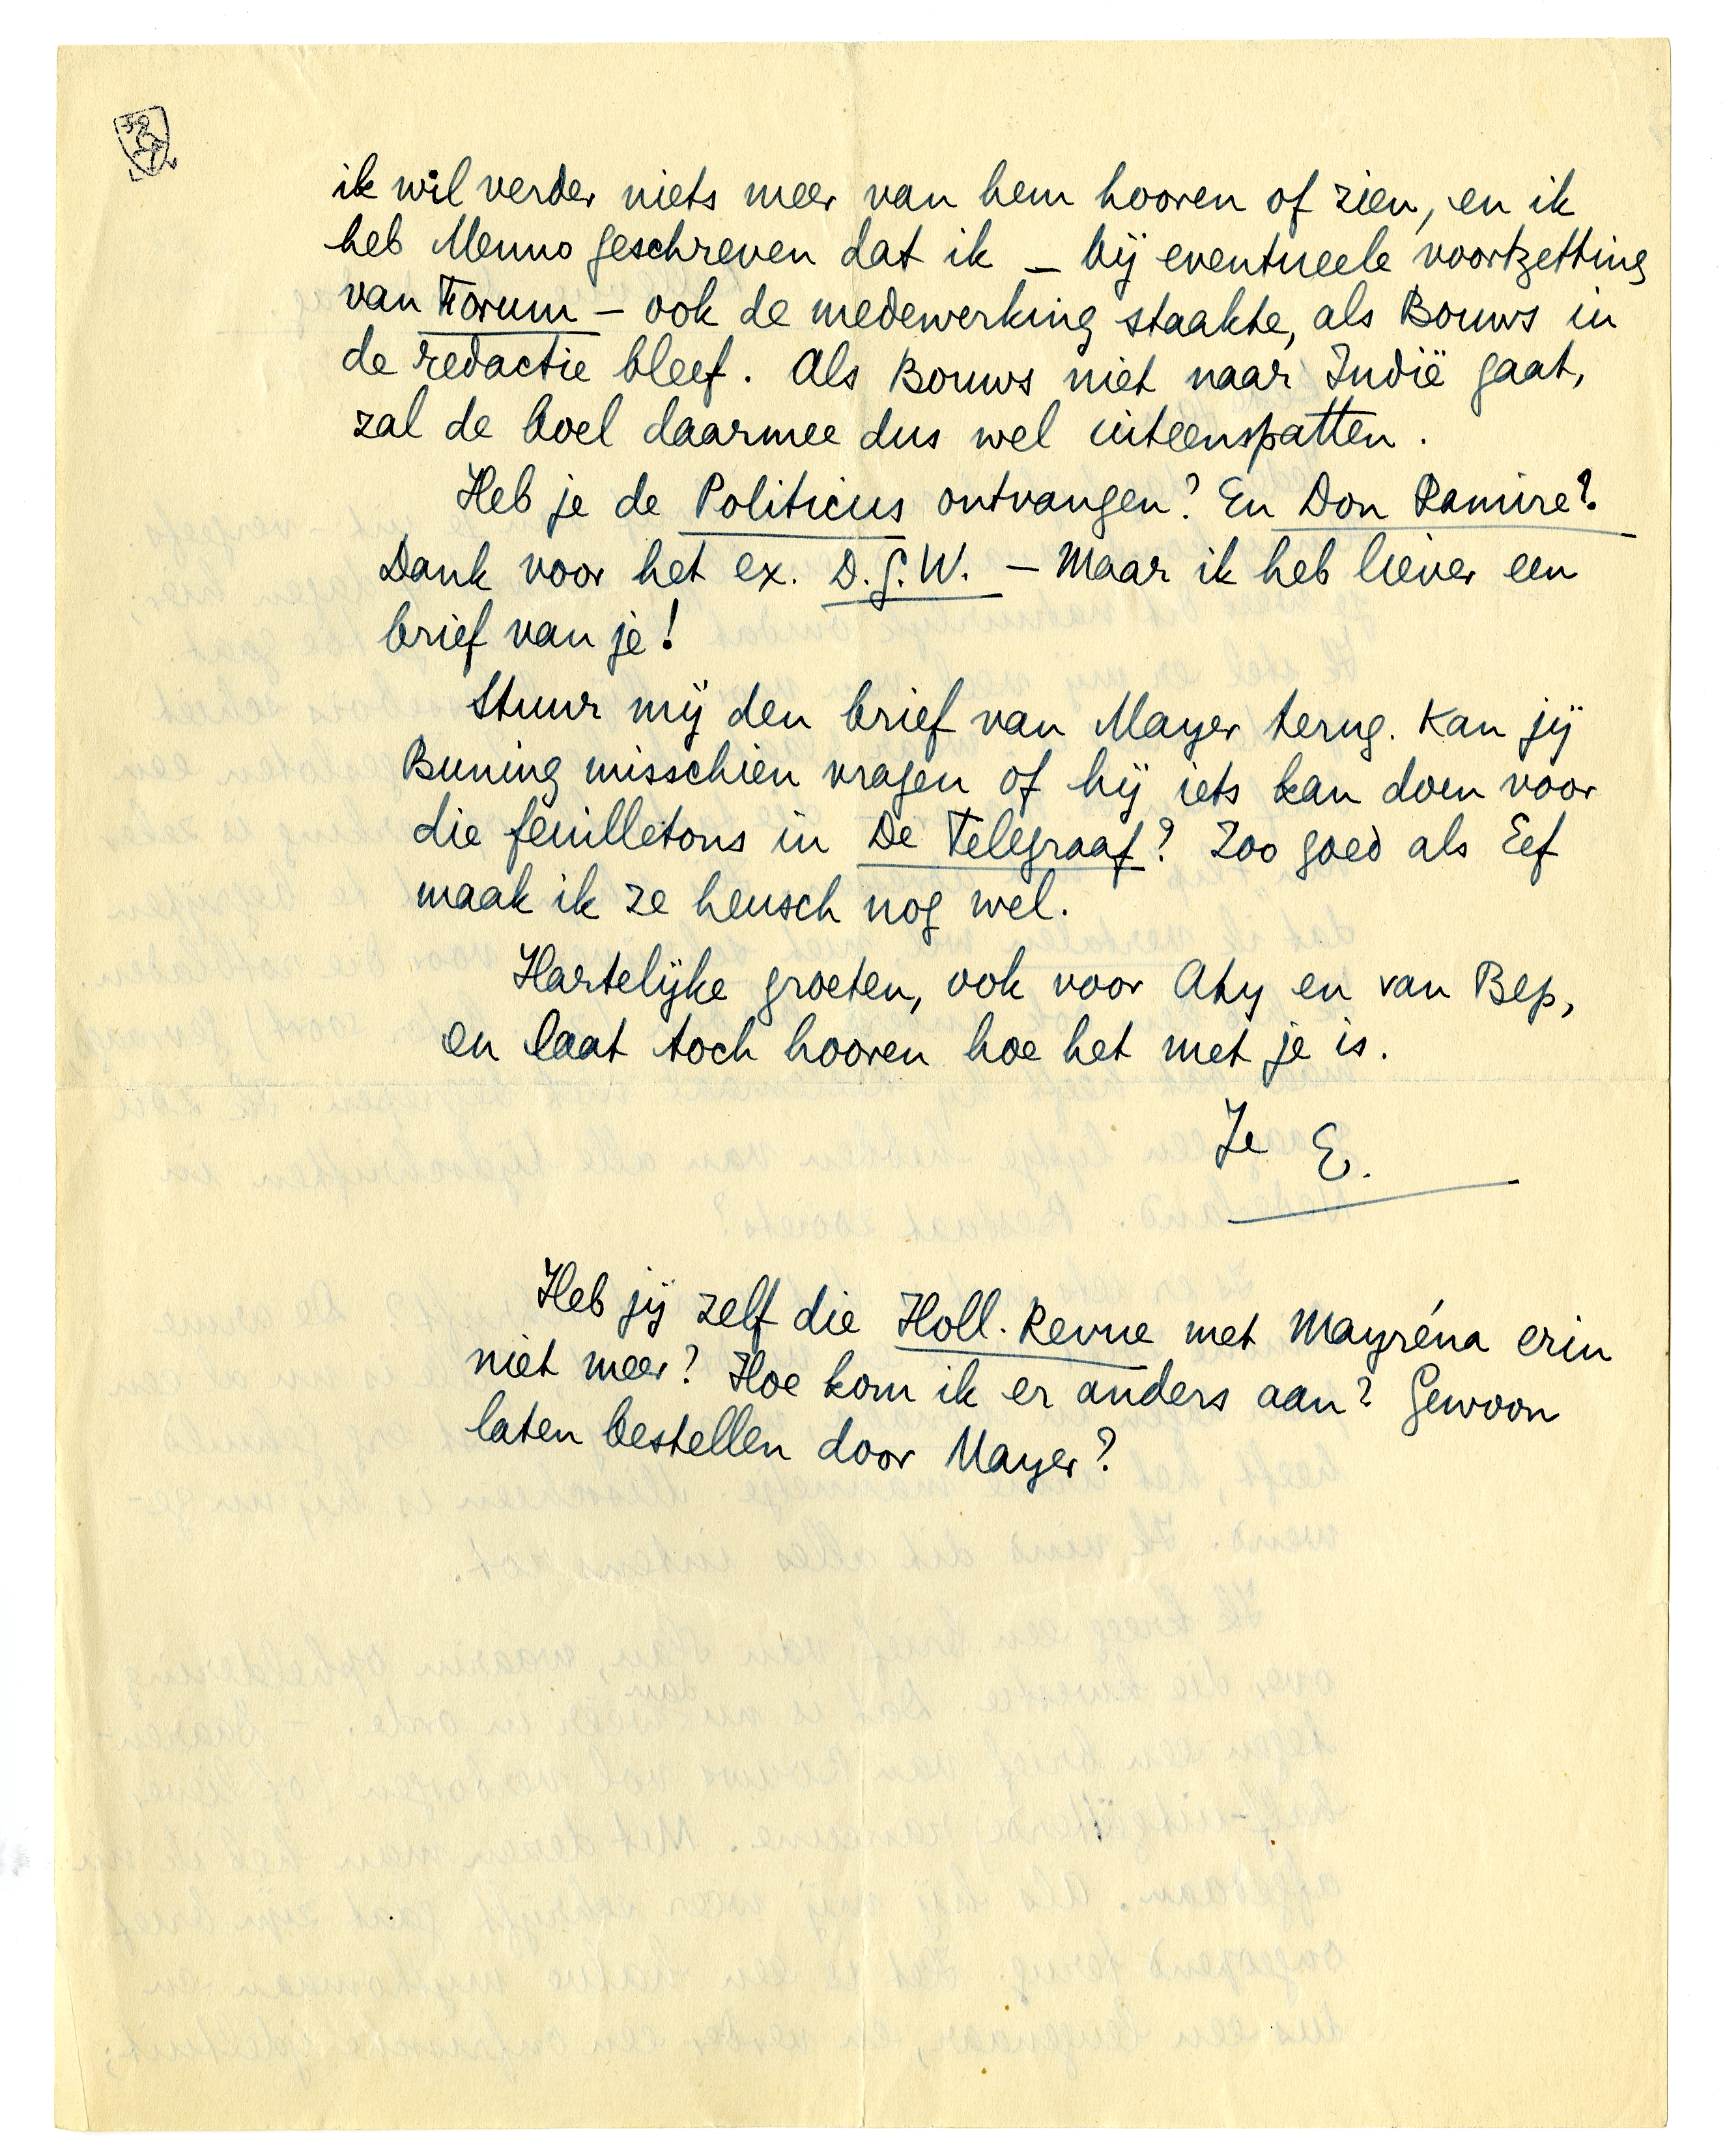 ik wil verder niets meer van hem hooren of zien, en ik
heb Menno geschreven dat ik – bij eventueele voortzetting
van Forum – ook de medewerking staakte, als Bouws in
de redactie bleef. Als Bouws niet naar Indië gaat,
zal de boel daarmee dus wel uiteenspatten.
Heb je de Politicus ontvangen? En Don Ramire?
Dank voor het ex. D.G.W. – Maar ik heb liever een
brief van je!
Stuur mij den brief van Mayer terug. Kan jij
Buning misschien vragen of hij iets kan doen voor
die feuilletons in De Telegraaf? Zoo goed als Eef
maak ik ze heusch nog wel.
Hartelijke groeten, ook voor Aty en van Bep,
en laat toch hooren hoe het met je is.
Je E.
Heb jij zelf die Holl. Revue met Mayréna erin
niet meer? Hoe kom ik er anders aan? Gewoon
laten bestellen door Mayer?